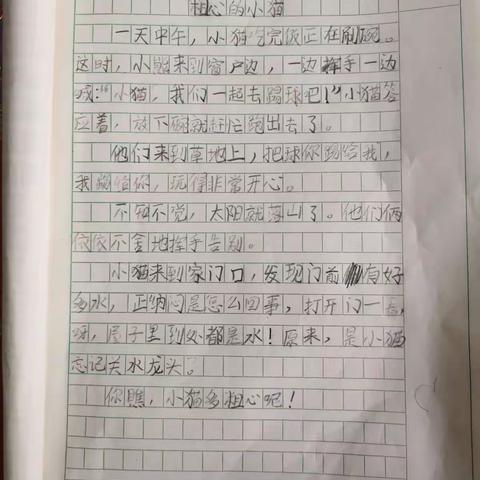 粗心的小猫
一天中午，小猫吃完饭正在刷碗。
这时，小鼠来到窗户边，一边挥手一边
喊：“小猫，我们一起去踢球吧！”小猫答
应着，放下碗就赶忙跑出去了。
他们来到草地上，把球你踢给我，
我踢给你，玩得非常开心。
不知不觉，太阳就落山了。他们俩
依依不舍地挥手告别。
小猫来到家门口，发现门前有好
多水，正纳闷是怎么回事，打开门一看，
呀，屋子里到处都是水！原来，是小猫
忘记关水龙头。
你瞧，小猫多粗心呢！